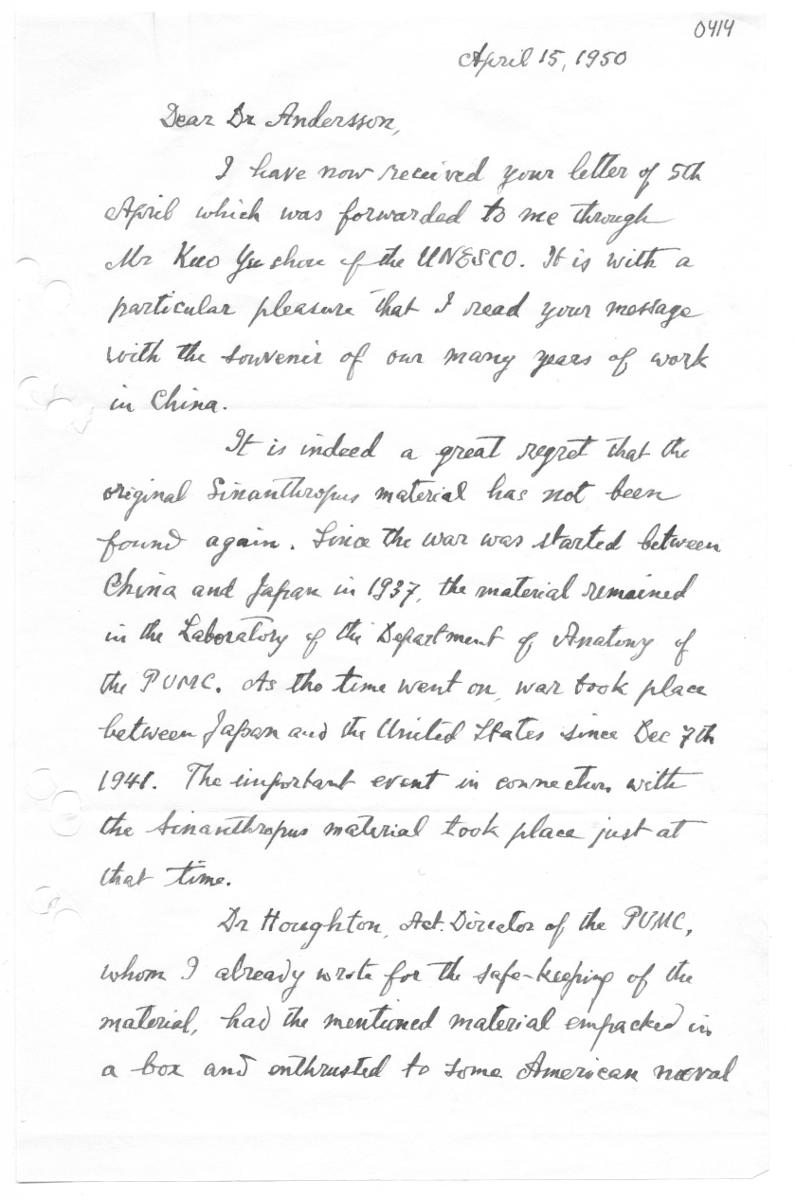 0414
April 15, 1950
Dear Dr Andersson,
I have now received your letter of 5th
April which was forwarded to me through
Mr Kuo Yu shou of the UNESCO. It is with a
particular pleasure that I read your message
with the souvenir of our many years of work
in China.
It is indeed a great regret that the
original Sinanthropus material has not been
found again. Since the war was started between
China and Japan in 1937, the material remained
in the Laboratory of the Department of Anatomy of
the PUMC. As the time went on, war took place
between Japan and the United States since Dec 7th
1941. The important event in connection with
the Sinanthropus material took place just at
that time.
Dr Houghton, Act. Director of the PUMC,
whom I already wrote for the safe-keeping of the
material, had the mentioned material empacked in
a box and enthrusted to some American naval